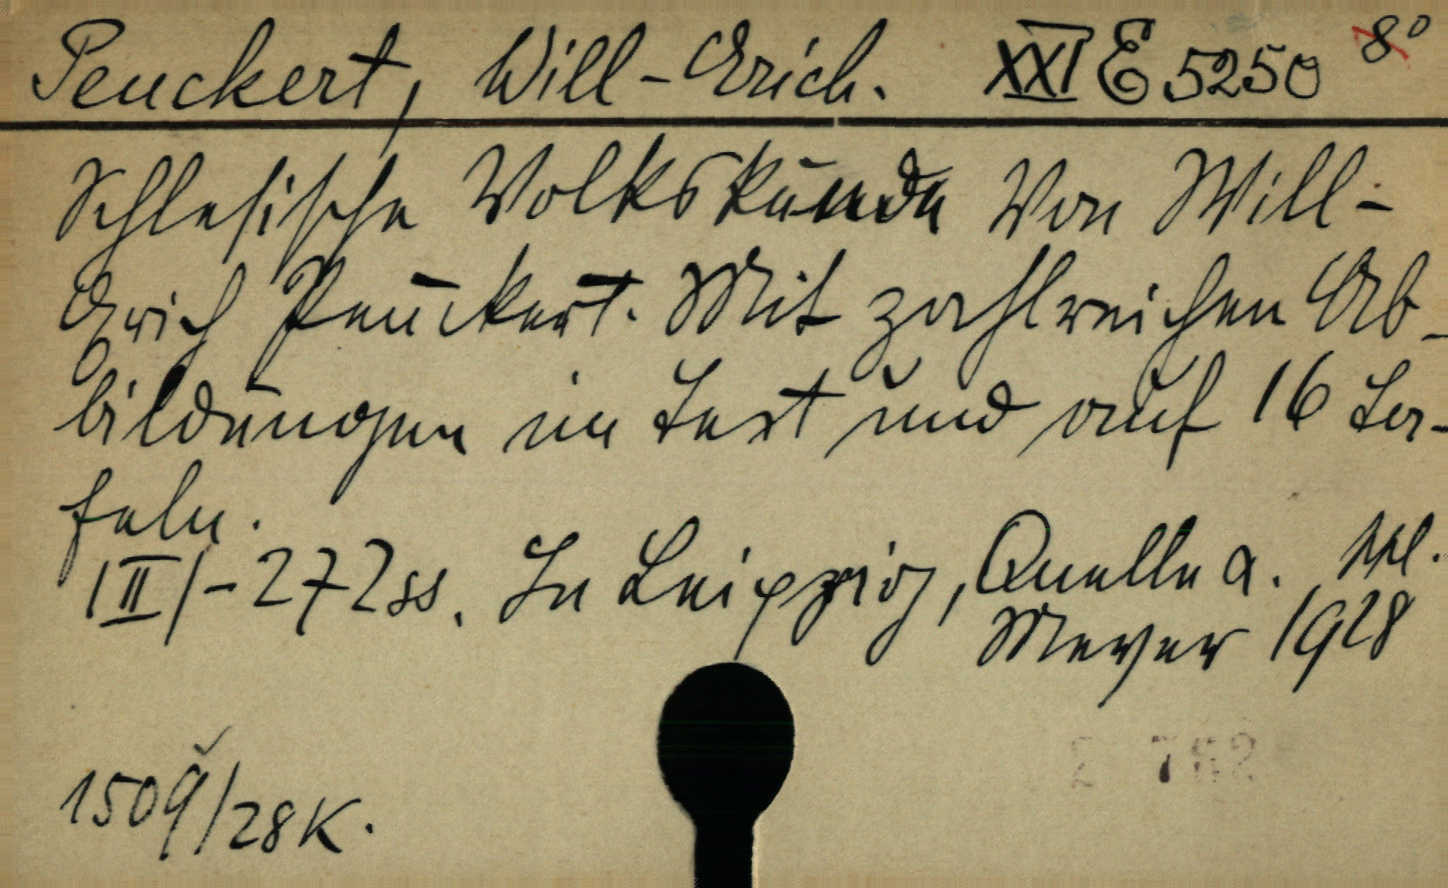 Peuckert, Will-Erich. XXI E 5250 8°
Schlesische Volkskunde Von Will-
Erich Peuckert. Mit zahlreichen Ab-
bildungen im Text und auf 16 Ta-
feln.
|II|-272ss. In Leipzig, Quelle a.
Meyer 1928
1509/28K.